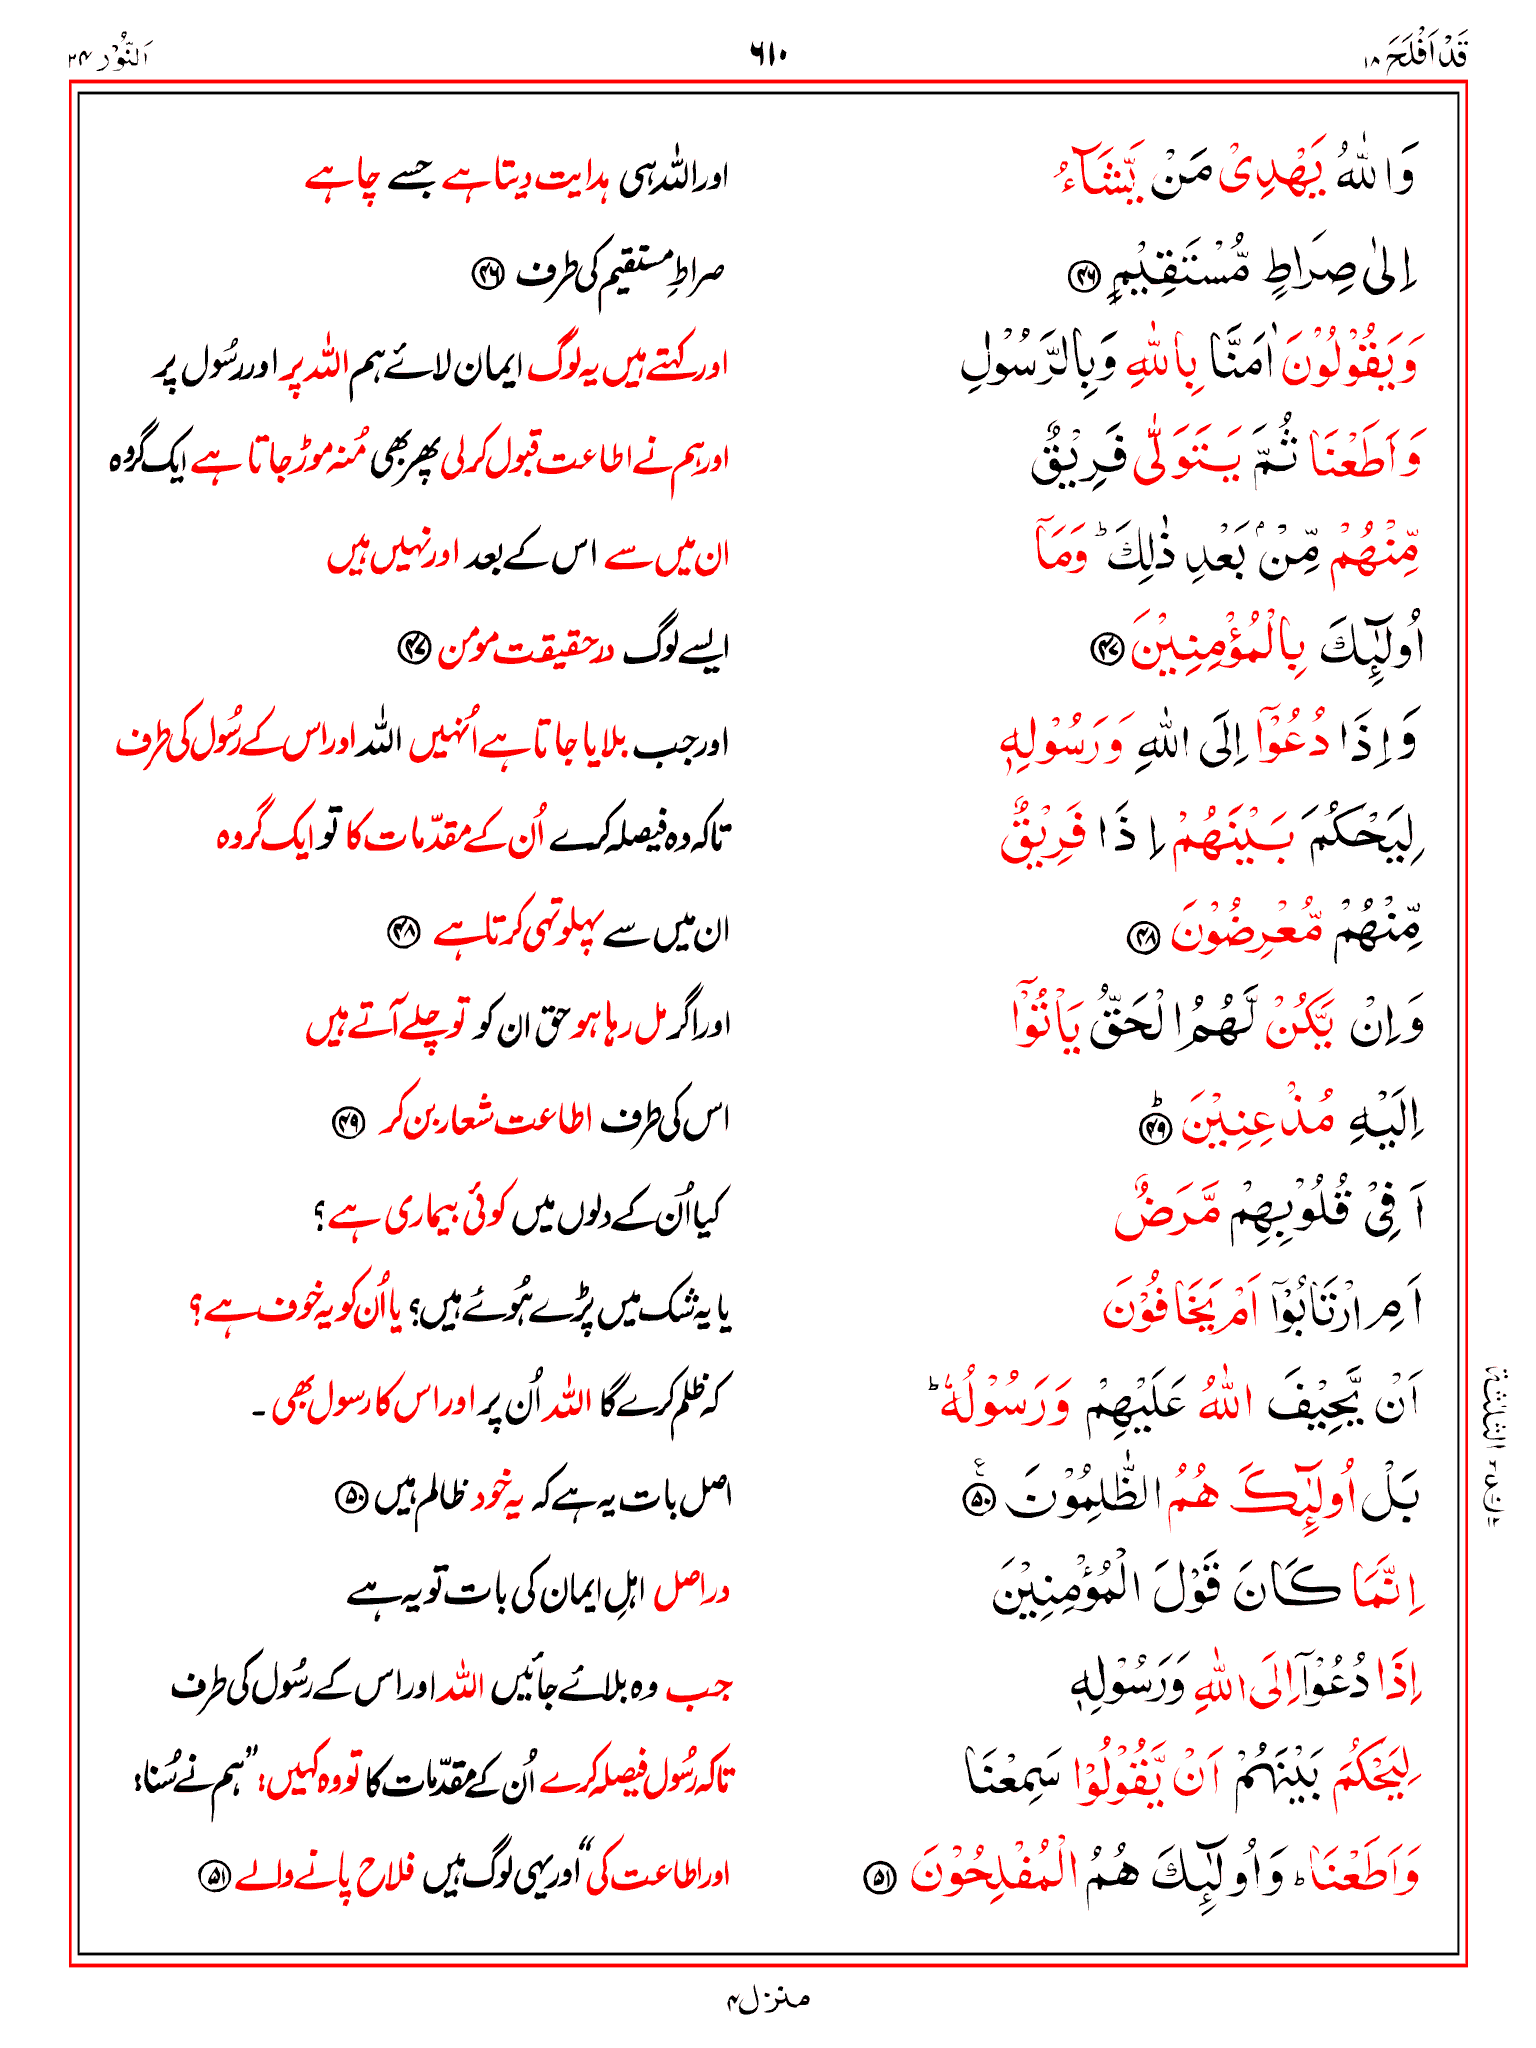 قَدْ اَفْلَحَ ۱۸
۶۱۰
اَلنُّوْر ۲۴
وَاللّٰهُ يَهْدِىْ مَنْ يَّشَآءُ
اور اللہ ہی ہدایت دیتا ہے جسے چاہے
اِلٰى صِرَاطٍ مُّسْتَقِيْمٍ ۴۶
صراطِ مستقیم کی طرف ۴۶
وَيَقُوْلُوْنَ اٰمَنَّا بِاللّٰهِ وَبِالرَّسُوْلِ
اور کہتے ہیں یہ لوگ ایمان لائے ہم اللہ پر اور رسُول پر
وَاَطَعْنَا ثُمَّ يَتَوَلّٰى فَرِيْقٌ
اور ہم نے اطاعت قبول کر لی پھر بھی مُنہ موڑ جاتا ہے ایک گروہ
مِّنْهُمْ مِّنْۢ بَعْدِ ذٰلِكَ ؕ وَمَآ
ان میں سے اس کے بعد اور نہیں ہیں
اُولٰٓئِكَ بِالْمُؤْمِنِيْنَ ۴۷
ایسے لوگ درحقیقت مومن ۴۷
وَاِذَا دُعُوْٓا اِلَى اللّٰهِ وَرَسُوْلِهٖ
اور جب بلایا جاتا ہے اُنہیں اللہ اور اس کے رسُول کی طرف
لِيَحْكُمَ بَيْنَهُمْ اِذَا فَرِيْقٌ
تاکہ وہ فیصلہ کرے اُن کے مقدّمات کا تو ایک گروہ
مِّنْهُمْ مُّعْرِضُوْنَ ۴۸
ان میں سے پہلو تہی کرتا ہے ۴۸
وَاِنْ يَّكُنْ لَّهُمُ الْحَقُّ يَاْتُوْٓا
اور اگر مل رہا ہو حق ان کو تو چلے آتے ہیں
اِلَيْهِ مُذْعِنِيْنَ ؕ ۴۹
اس کی طرف اطاعت شعار بن کر ۴۹
اَفِىْ قُلُوْبِهِمْ مَّرَضٌ
کیا اُن کے دلوں میں کوئی بیماری ہے ؟
اَمِ ارْتَابُوْٓا اَمْ يَخَافُوْنَ
یا یہ شک میں پڑے ہُوئے ہیں؟ یا اُن کو یہ خوف ہے ؟
اَنْ يَّحِيْفَ اللّٰهُ عَلَيْهِمْ وَرَسُوْلُهٗ ؕ
کہ ظلم کرے گا اللہ اُن پر اور اس کا رسول بھی ۔
بَلْ اُولٰٓئِكَ هُمُ الظّٰلِمُوْنَ ۵۰ ع
اصل بات یہ ہے کہ یہ خود ظالم ہیں ۵۰
اِنَّمَا كَانَ قَوْلَ الْمُؤْمِنِيْنَ
دراصل اہلِ ایمان کی بات تو یہ ہے
اِذَا دُعُوْٓا اِلَى اللّٰهِ وَرَسُوْلِهٖ
جب وہ بلائے جائیں اللہ اور اس کے رسُول کی طرف
لِيَحْكُمَ بَيْنَهُمْ اَنْ يَّقُوْلُوْا سَمِعْنَا
تاکہ رسُول فیصلہ کرے اُن کے مقدّمات کا تو وہ کہیں: ”ہم نے سُنا؛
وَاَطَعْنَا ؕ وَاُولٰٓئِكَ هُمُ الْمُفْلِحُوْنَ ۵۱
اور اطاعت کی“ اور یہی لوگ ہیں فلاح پانے والے ۵۱
منزل ۴